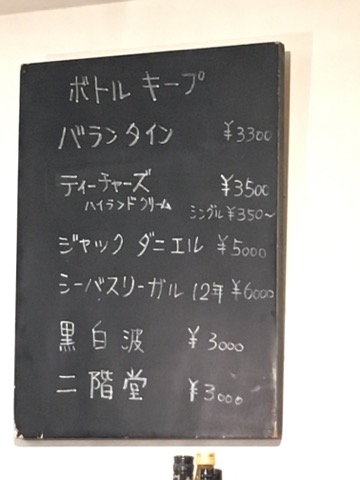 ボトルキープ
バランタイン ¥3300
ティーチャーズ ¥3500
ハイランドクリーム シングル ¥350〜
ジャック ダニエル ¥5000
シーバスリーガル 12年 ¥6000
黒白波 ¥3000
二階堂 ¥3000